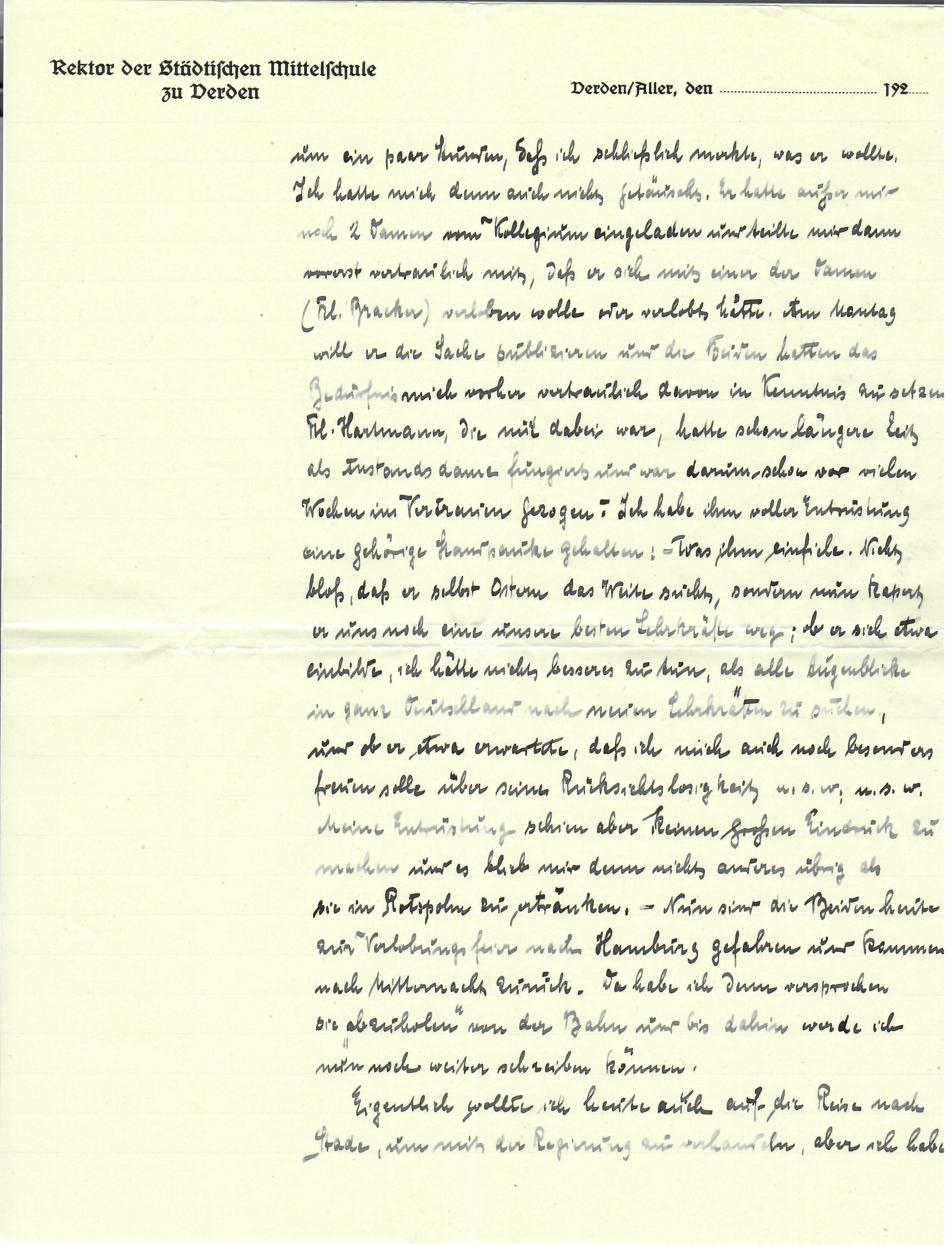 Rektor der Städtischen Mittelschule
zu Verden
Verden/Aller, den 192
um ein paar Stunden, daß ich schließlich merkte, was er wollte.
Ich hatte mich denn auch nicht getäuscht. Er hatte außer mir
noch 2 Damen vom Kollegium eingeladen und teilte mir dann
vorerst vertraulich mit, daß er sich mit einer der Damen
(Frl. Bracker) verloben wolle oder verlobt hätte. Am Montag
will er die Sache publizieren und die Beiden hatten das
Bedürfnis mich vorher vertraulich davon in Kenntnis zu setzen
Frl. Hartmann, die mit dabei war, hatte schon längere Zeit
als Anstandsdame fungiert und war darum schon vor vielen
Wochen ins Vertrauen gezogen. Ich habe ihm voller Entrüstung
eine gehörige Standpauke gehalten: - Was ihm einfiele. Nicht
bloß, daß er selbst Ostern das Weite sucht, sondern nun kapert
er uns noch eine unsere besten Lehrkräfte weg; ob er sich etwa
einbilde, ich hätte nichts besseres zu tun, als alle Augenblicke
in ganz Deutschland nach neuen Lehrkräften zu suchen.,
und ob er etwa erwartete, daß ich mich auch noch besonders
freuen solle über seine Rücksichtslosigkeit u. s. w; u. s. w.
Meine Entrüstung schien aber keinen großen Eindruck zu
machen und es blieb mir denn nichts anderes übrig als
sie in Rotspohn zu ertränken. - Nun sind die Beiden heute
zur Verlobungsfeier nach Hamburg gefahren und kommen
nach Mitternacht zurück. Da habe ich denn versprochen
sie "abzuholen" von der Bahn und bis dahin werde ich
nun noch weiter schreiben können.
Eigentlich wollte ich heute auch auf die Reise nach
Stade, um mit der Regierung zu verhandeln, aber ich habe